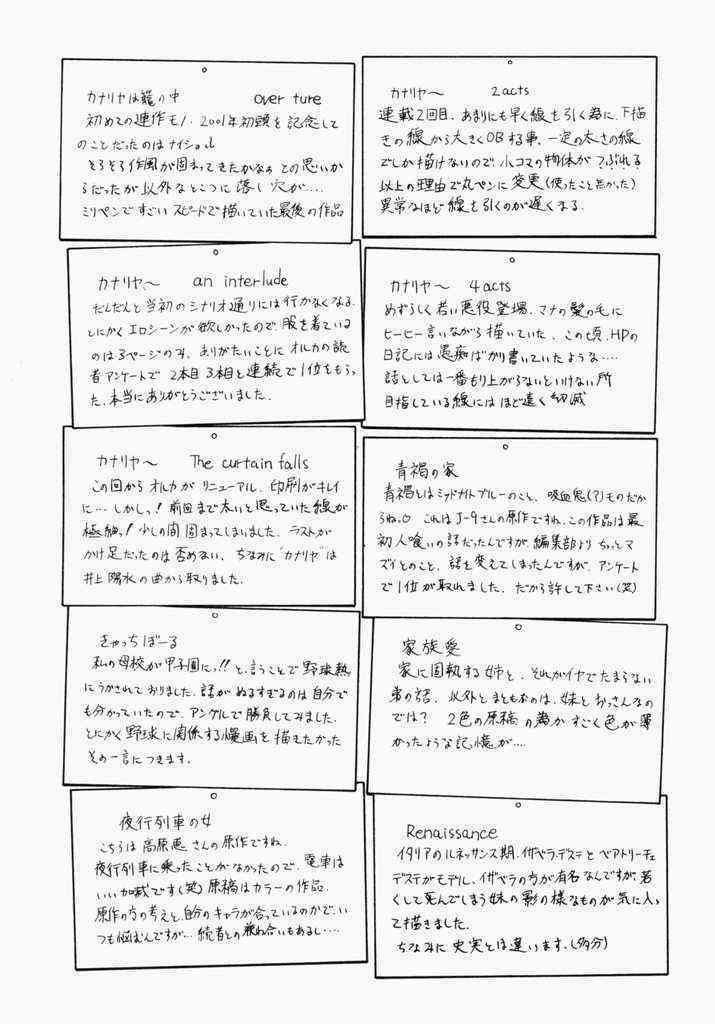 カナリヤは籠の中　over ture
初めての連作モノ。2001年初頭を記念して
のことだったのはナイショ。
そろそろ作風が固まってきたかなぁとの思いか
らだったが以外なところに落し穴が…
ミリペンですごいスピードで描いていた最後の作品
カナリヤ〜　2acts
連載2回目、あまりにも早く線を引く為に、下描
きの線から大きくOBする事、一定の太さの線
でしか描けないので、小コマの物体がつぶれる
以上の理由で丸ペンに変更(使ったこと無かった)
異常なほど線を引くのが遅くなる。
カナリヤ〜　an interlude
だんだんと当初のシナリオ通りには行かなくなる。
とにかくエロシーンが欲しかったので、服を着ている
のは3ページのみ、ありがたいことにオルカの読
者アンケートで2本目3本目と連続で1位をもらっ
た、本当にありがとうございました。
カナリヤ〜　4acts
めずらしく若い悪役登場、マナの髪の毛に
ヒーヒー言いながら描いていた、この頃、HPの
日記には愚痴ばかり書いていたような…
話としては一番もり上がらないといけない所
目指している線にはほど遠く
カナリヤ〜　The curtain falls
この回からオルカがリニューアル、印刷がキレイ
に… しかしっ！前回まで太いと思っていた線が
極細っ！少しの間固まってしまいました、ラストが
かけ足だったのは否めない、ちなみに"カナリヤ"は
井上陽水の曲から取りました。
青褐の家
青褐とはミッドナイトブルーのこと、吸血鬼(?)ものだか
らね。これはJ-9さんの原作ですね。この作品は最
初人喰いの話だったんですが、編集部よりちっとマ
ズイとのこと、話を変えてしまったんですが、アンケート
で1位が取れました、だから許して下さい(笑)
きゃっちぼーる
私の母校が甲子園にっ！！と、言うことで野球熱
にうかされておりました、話がぬるすぎるのは自分で
も分かっていたので、アングルで勝負してみました、
とにかく野球に関係する漫画を描きたかった
その一言につきます。
家族愛
家に固執する姉と、それがイヤでたまらない
弟の話、以外とまともなのは、妹とおっさんなの
では？　2色の原稿の為かすごく色が薄
かったような記憶が…
夜行列車の女
こちらは高原恵さんの原作ですね、
夜行列車に乗ったことがなかったので、電車は
いい加減です(笑)原稿はカラーの作品
原作の方の考えと、自分のキャラが合っているのかで、い
つも悩むんですが… 読者との兼ね合いもあるし…
Renaissance
イタリアのルネッサンス期、イザベラ・デステとベアトリーチェ
デステがモデル、イザベラの方が有名なんですが、若
くして死んでしまう妹の影の様なものが気に入っ
て描きました。
ちなみに史実とは違います。(多分)